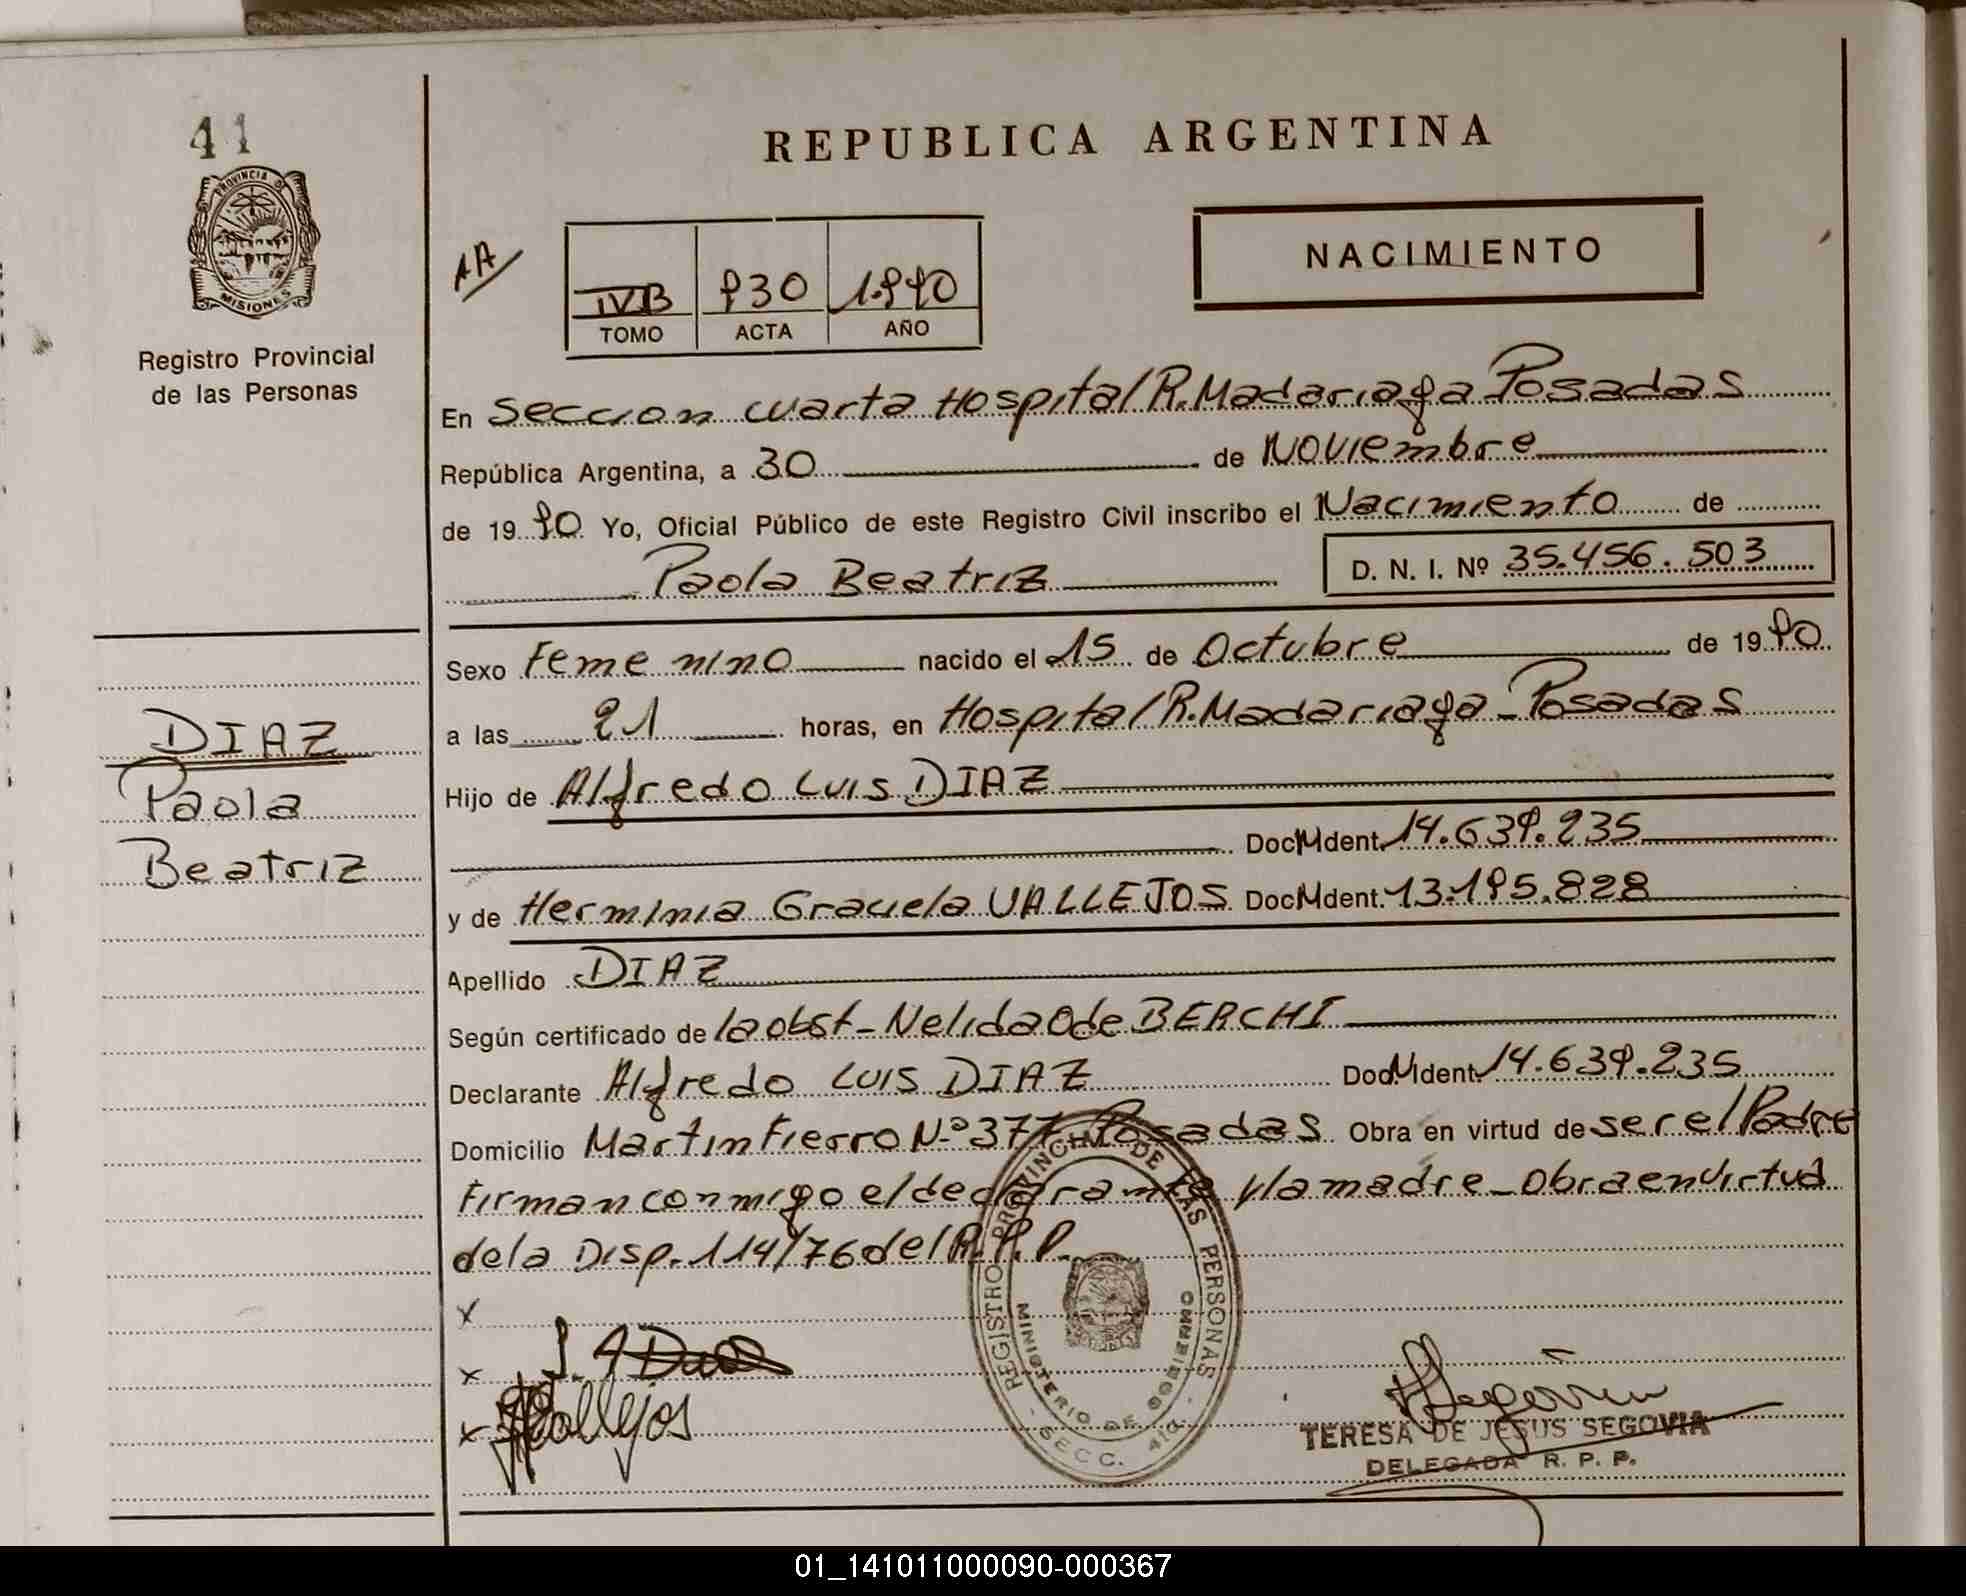 41
PROVINCIA DE
MISIONES
Registro Provincial
de las Personas
DIAZ
Paola
Beatriz
REPUBLICA ARGENTINA
AA
IVB 930 1.990
TOMO ACTA AÑO
NACIMIENTO
En Seccion cuarta Hospital R. Madariaga Posadas
República Argentina, a 30 de Noviembre
de 19 90 Yo, Oficial Público de este Registro Civil inscribo el Nacimiento de
Paola Beatriz D. N. I. Nº 35.456.503
Sexo Femenino nacido el 15 de Octubre de 19 90
a las 21 horas, en Hospital R. Madariaga - Posadas
Hijo de Alfredo Luis DIAZ
Doc M Ident. 14.639.235
y de Herminia Graciela VALLEJOS Doc M Ident. 13.195.828
Apellido DIAZ
Según certificado de la obst - Nelida O de BERCHI
Declarante Alfredo Luis DIAZ Doc M Ident. 14.639.235
Domicilio Martin Fierro N.º 377 - Posadas Obra en virtud de ser el Padre
Firman conmigo el declarante y la madre - Obra en virtud
de la Disp. 114/76 del R.P.P.
x
x
x Vallejos
REGISTRO PROVINCIAL DE LAS PERSONAS
MINISTERIO DE GOBIERNO
- SECC. 4ta. -
TERESA DE JESUS SEGOVIA
DELEGADA R. P. P.
01_141011000090-000367